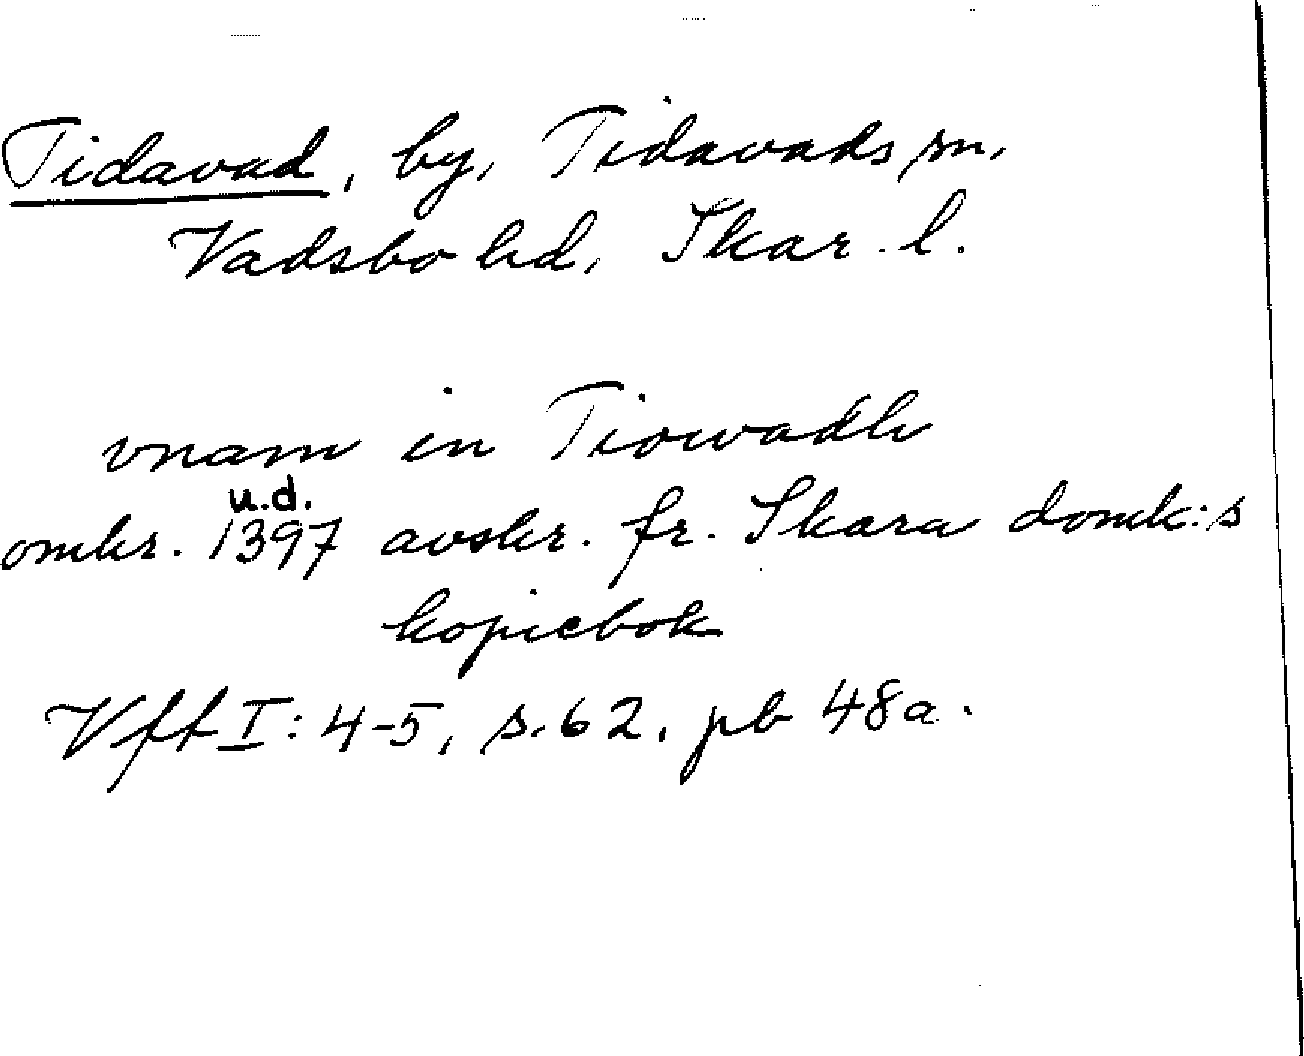 Tidavad, by, Tidavads sn,
Vadsbo hd, Skar. l.
vnam in Tiowadh
u.d.
omkr. 1397 avskr. fr. Skara domk:s
kopiebok
Vff I: 4-5, s. 62. pb 48a.